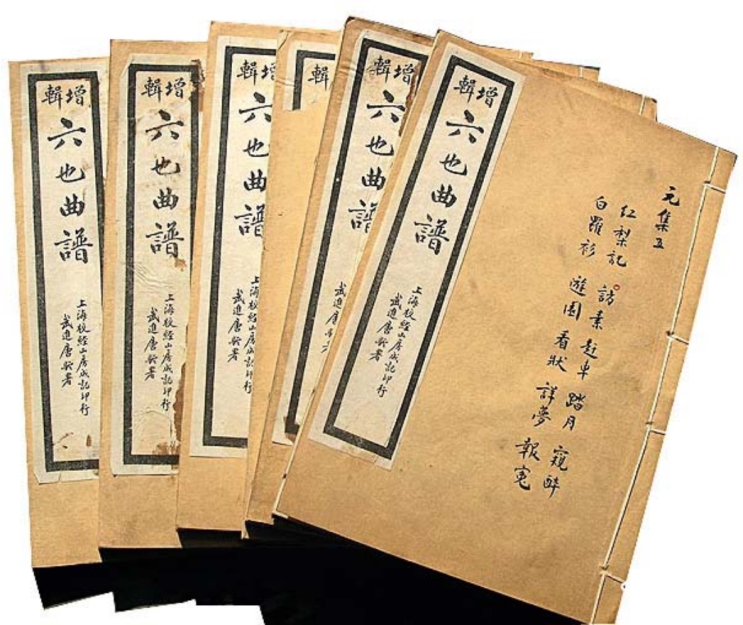 增輯
六也曲譜
上海校經山房成記印行
武進唐駝署
增輯
六也曲譜
上海校經山房成記印行
武進唐駝署
增輯
六也曲譜
上海校經山房成記印行
武進唐駝署
輯
增輯
六也曲譜
武進唐
增輯
六也曲譜
上海校經山房成記印行
武進唐駝署
元集五
紅梨記 訪素 赶車 踏月 窺醉
白羅衫 遊園 看狀 詳夢 報冤